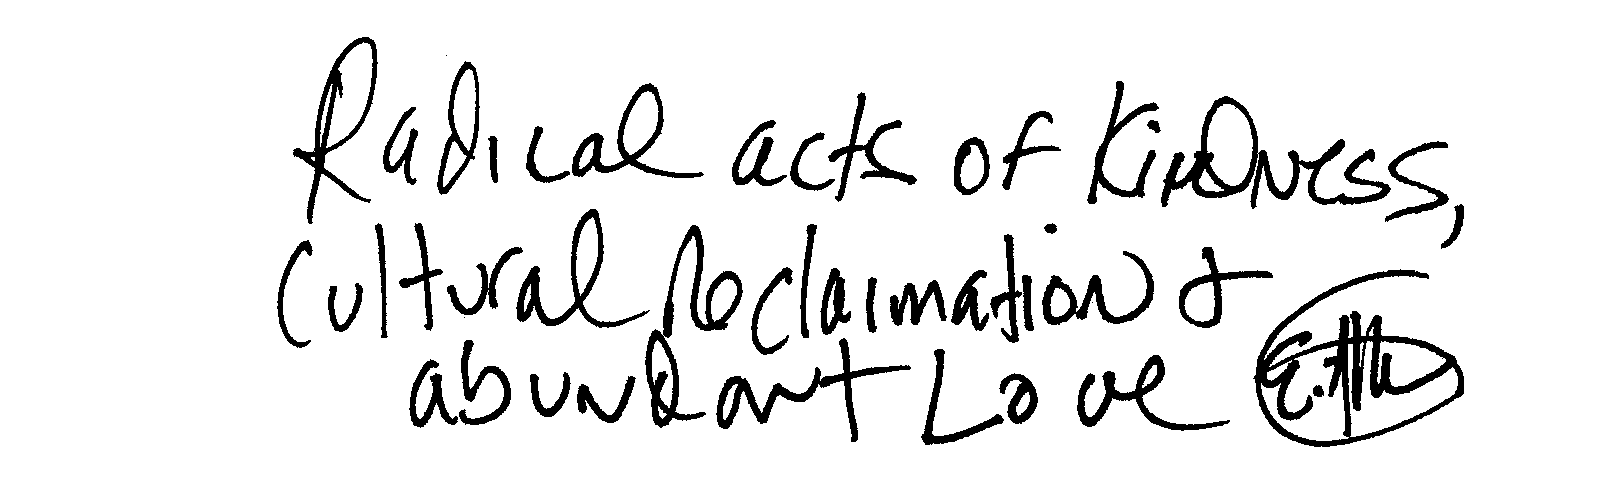 Radical acts of Kindness,
Cultural Reclamation &
abundant Love